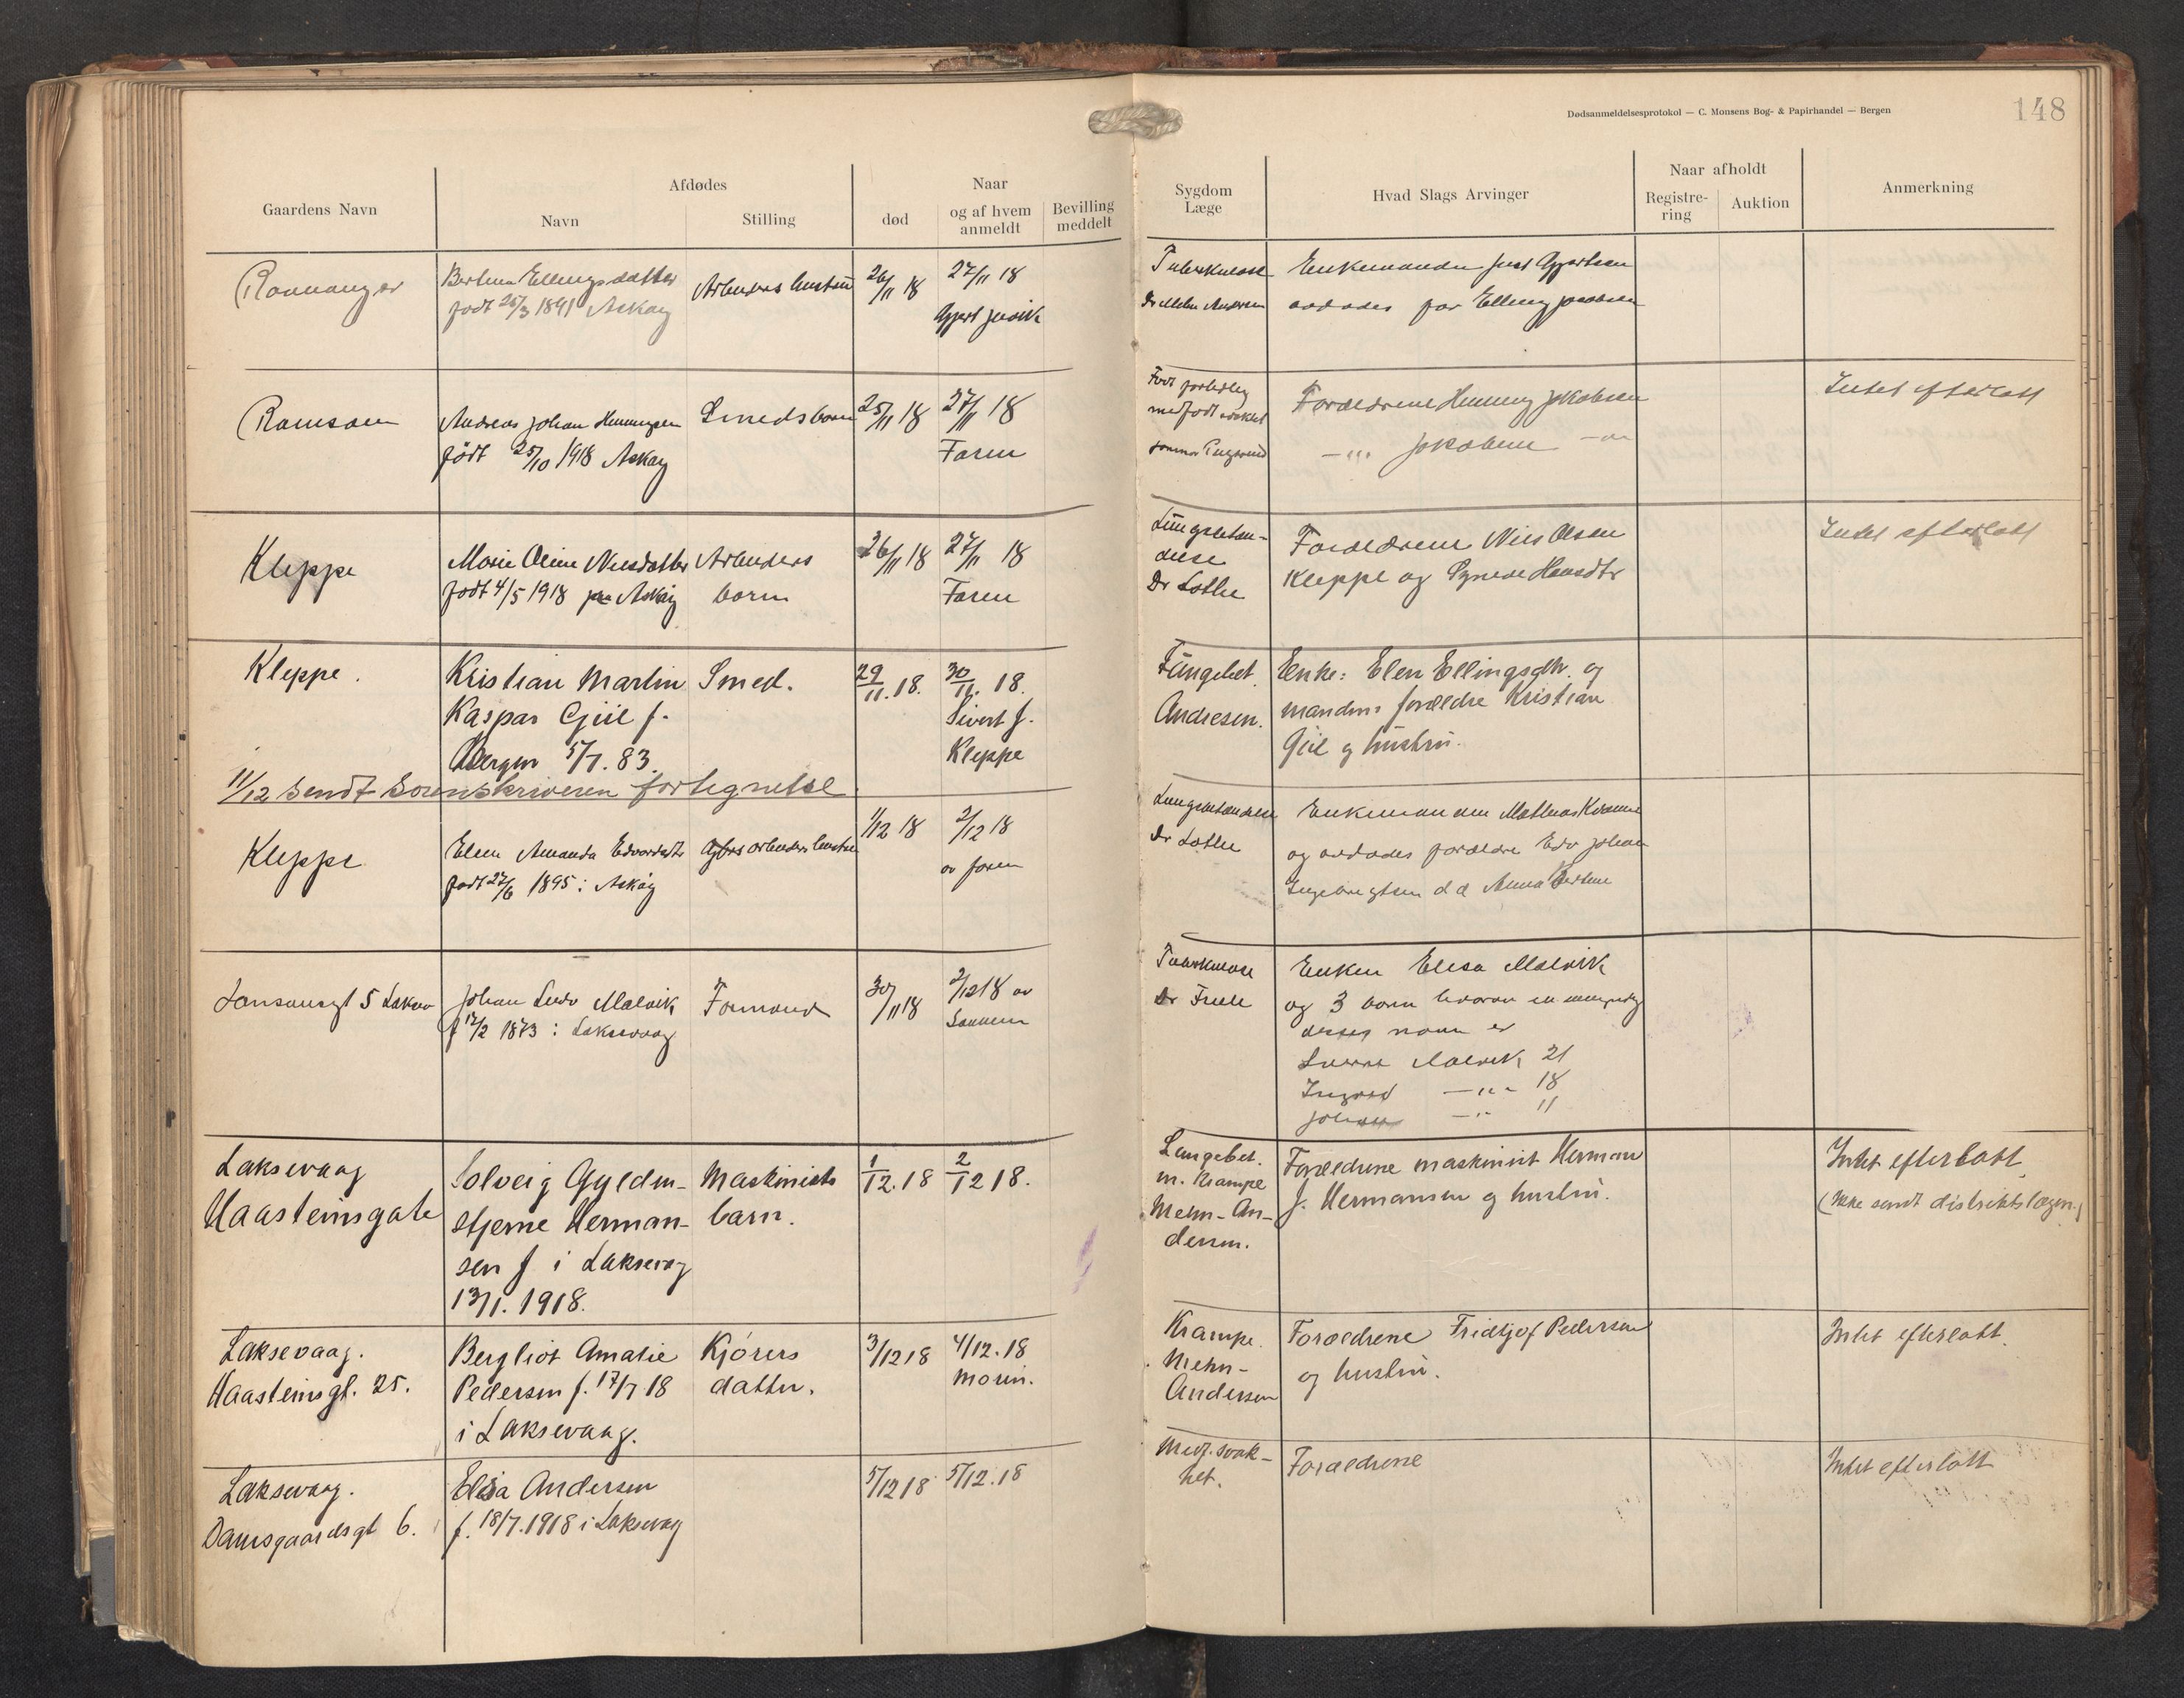 Dødsanmeldelsesprotokol — C. Monsens Bog- & Papirhandel — Bergen
148
Gaardens Navn
Afdødes
Navn
Stilling
død
Naar
og af hvem
anmeldt
Bevilling
meddelt
Sygdom
Læge
Hvad Slags Arvinger
Naar afholdt
Registre-
ring
Auktion
Anmerkning
Ellingsdatter
født 25/3 1891 Askøy
Arbeiders hustru
26/11 18
27/11 18
Tuberkulose
Enkemanden
avdødes far Elling Jacobsen
Ramsøen
Andreas Johan Henningsen
født 25/10 1918 Askøy
Smedsbarn
25/11 18
27/11 18
Faren
Født
Forældrene Henning Jakobsen
—"— Jakobine —
Intet efterlatt
Kleppe
Marie Oline Nilsdatter
født 4/5 1918 Askøy
Arbeiders
barn
26/11 18
27/11 18
Faren
Lungebetæn-
delse
Dr Lothe
Forældrene Nils Olsen
Kleppe og Synneve Hansdtr
Intet efterlatt
Kleppe.
Kristian Martin
Kaspar Giil f.
Bergen 5/7. 83.
Smed.
29/11. 18.
30/11. 18.
Sivert J.
Kleppe
Lungebet.
Andresen.
Enke: Elen Ellingsdtr. og
mandens forældre Kristian
Giil og hustru.
11/12 sendt Sorenskriveren fortegnelse
Kleppe
Elen Amanda Edvardsdtr
født 27/6 1895 i Askøy
arbeiders hustru
1/12 18
2/12 18
av faren
Lungebetændelse
Dr Lothe
Enkemanden Mathias
og avdødes forældre Edv Johan
Ingebregtsen og Anna Bertine
5 Laksev
Johan Ludv Malvik
f 12/2 1873 i Laksevaag
Formand
30/11 18
2/12 18 av
Sønnen
Tuberkulose
Dr
Enken Elisa Malvik
og 3 barn hvorav en umyndig
deres navn er
Malvik 21
Ingrid —"— 18
Johan —"— 11
Laksevaag
Haasteinsgate
Solveig Gylden-
stjerne Herman-
sen f i Laksevag
13/1. 1918.
Maskinists
barn.
1/12. 18
2/12 18.
Lungebet.
m. Krampe
Mehn-An-
dersen.
Forældrene maskinist Herman
J. Hermansen og hustru.
Intet efterlatt
(Ikke sendt distriktslægen)
Laksevaag.
Haasteinsgt. 25.
Bergliot Amalie
Pedersen f. 17/7 18
i Laksevaag.
Kjørers
datter.
3/12 18
4/12. 18
Moren.
Krampe.
Mehn-
Andersen
Forældrene Fridtjof Pedersen
og hustru.
Intet efterlatt.
Laksevaag.
Damsgaardsgt 6.
Elisa Andersen
f. 18/7. 1918 i Laksevag
5/12 18
5/12. 18
Medf. svak-
het.
Forældrene
Intet efterlatt